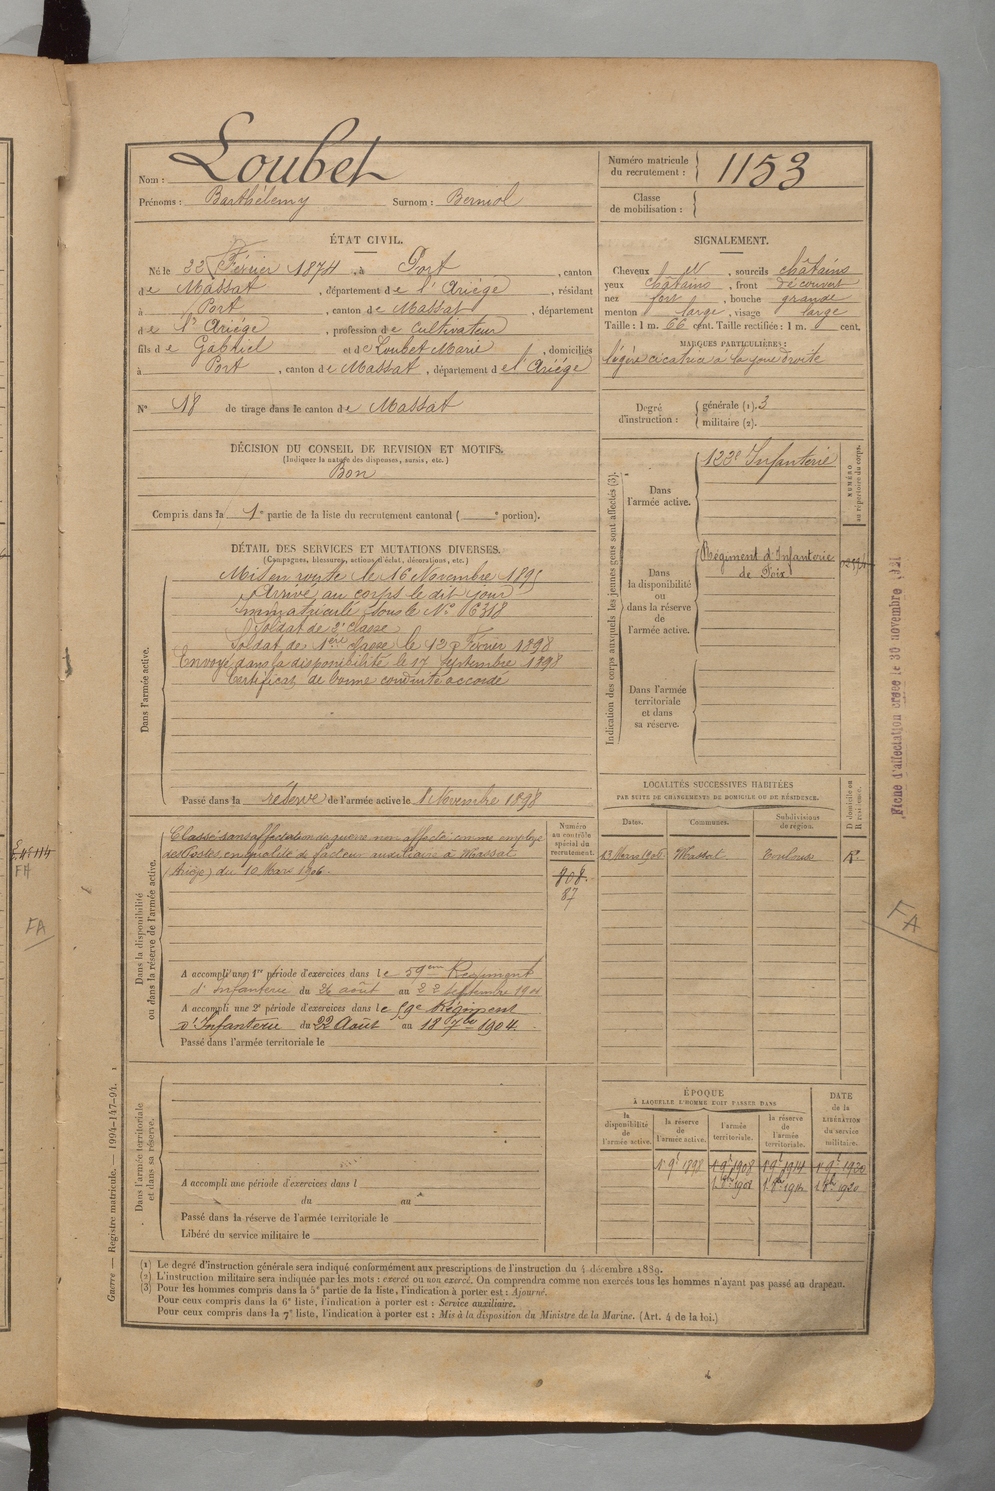 Nom : Loubet
Prénoms : Barthélemy Surnom : Berniol
Numéro matricule
du recrutement : 1153
Classe
de mobilisation :
ÉTAT CIVIL.
Né le 22 Février 1874, à Port, canton
de Massat, département de l'Ariège, résidant
à Port, canton de Massat, département
de l'Ariège, profession de Cultivateur
fils de Gabriel et de Loubet Marie, domiciliés
à Port, canton de Massat, département de l'Ariège
N° 18 de tirage dans le canton de Massat
SIGNALEMENT.
Cheveux et, sourcils châtains
yeux châtains, front découvert
nez fort, bouche grande
menton large, visage large
Taille : 1 m. 66 cent. Taille rectifiée : 1 m. cent.
MARQUES PARTICULIÈRES :
légère cicatrice à la joue droite
Degré
d'instruction :
générale (1). 3
militaire (2).
DÉCISION DU CONSEIL DE REVISION ET MOTIFS.
(Indiquer la nature des dispenses, sursis, etc.)
Bon
Compris dans la 1e partie de la liste du recrutement cantonal ( e portion).
DÉTAIL DES SERVICES ET MUTATIONS DIVERSES.
(Campagnes, blessures, actions d'éclat, décorations, etc.)
Dans l'armée active.
Mis en route le 16 Novembre 1895
Arrivé au corps le dit jour
immatriculé sous le N° 16318
Soldat de 2e classe
Soldat de 1ère classe le 13 Février 1898
Envoyé dans la disponibilité le 17 Septembre 1898
Certificat de bonne conduite accordé
Passé dans la réserve de l'armée active le 1r Novembre 1898
Indication des corps auxquels les jeunes gens sont affectés (3).
NUMÉRO
au répertoire du corps.
Dans
l'armée active.
123e Infanterie
Dans
la disponibilité
ou
dans la réserve
de
l'armée active.
Régiment d'Infanterie
de Foix
Dans l'armée
territoriale
et dans
sa réserve.
Fiche d'affectation créée le 30 novembre 1921
Dans la disponibilité
ou dans la réserve de l'armée active.
Classé sans affectation de guerre non affecté comme employé
des Postes en qualité de facteur auxiliaire à Massat
(Ariège) du 10 Mars 1906.
Numéro
au contrôle
spécial du
recrutement.
808.
87
A accompli une 1re période d'exercices dans le 59eme Régiment
d'Infanterie du 26 août au 22 Septembre 1901
A accompli une 2e période d'exercices dans le 59e Régiment
d'Infanterie du 22 Août au 18 7bre 1904.
Passé dans l'armée territoriale le
LOCALITÉS SUCCESSIVES HABITÉES
PAR SUITE DE CHANGEMENTS DE DOMICILE OU DE RÉSIDENCE.
Dates. Communes. Subdivisions
de région.
D domicile ou
R résidence.
23 Mars 1906 Massat Toulouse R.
FA
FA
FA
Dans l'armée territoriale
et dans sa réserve.
A accompli une période d'exercices dans l
du au
Passé dans la réserve de l'armée territoriale le
Libéré du service militaire le
ÉPOQUE
À LAQUELLE L'HOMME DOIT PASSER DANS
la
disponibilité
de
l'armée active.
la réserve
de
l'armée active.
l'armée
territoriale.
la réserve
de
l'armée
territoriale.
DATE
de la
LIBÉRATION
du service
militaire.
1r 9e 1898 1r 9e 1908 1r 9e 1914 1r 9e 1920
Guerre — Registre matricule. — 1994-147-94.
(1) Le degré d'instruction générale sera indiqué conformément aux prescriptions de l'instruction du 4 décembre 1889.
(2) L'instruction militaire sera indiquée par les mots : exercé ou non exercé. On comprendra comme non exercés tous les hommes n'ayant pas passé au drapeau.
(3) Pour les hommes compris dans la 5e partie de la liste, l'indication à porter est : Ajourné.
Pour ceux compris dans la 6e liste, l'indication à porter est : Service auxiliaire.
Pour ceux compris dans la 7e liste, l'indication à porter est : Mis à la disposition du Ministre de la Marine. (Art. 4 de la loi.)